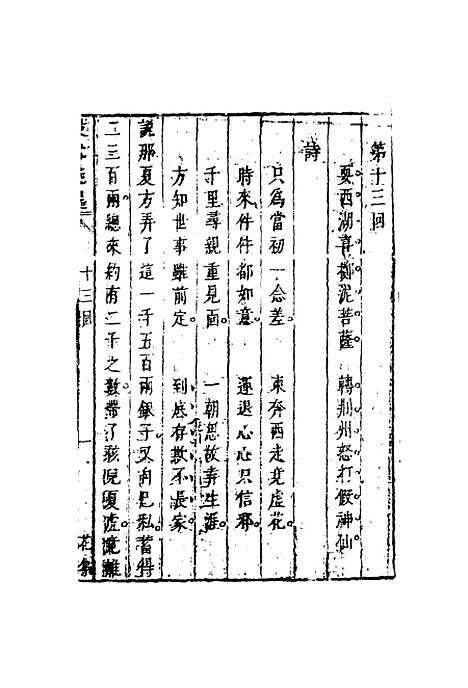 第十三回
耍西湖喜擲泥菩薩 轉荊州怒打假神仙
詩
只為當初一念差 東奔西走竟虛花
時來件件都如意 運退心心只信邪
千里尋親重見面 一朝思故弄生涯
方知世事雖前定 到底存數不長家
說那夏方弄了這一千五百兩銀子又向已私蓄得
二三百兩總來約有二千之數帶了孩兒夏虎
十三回